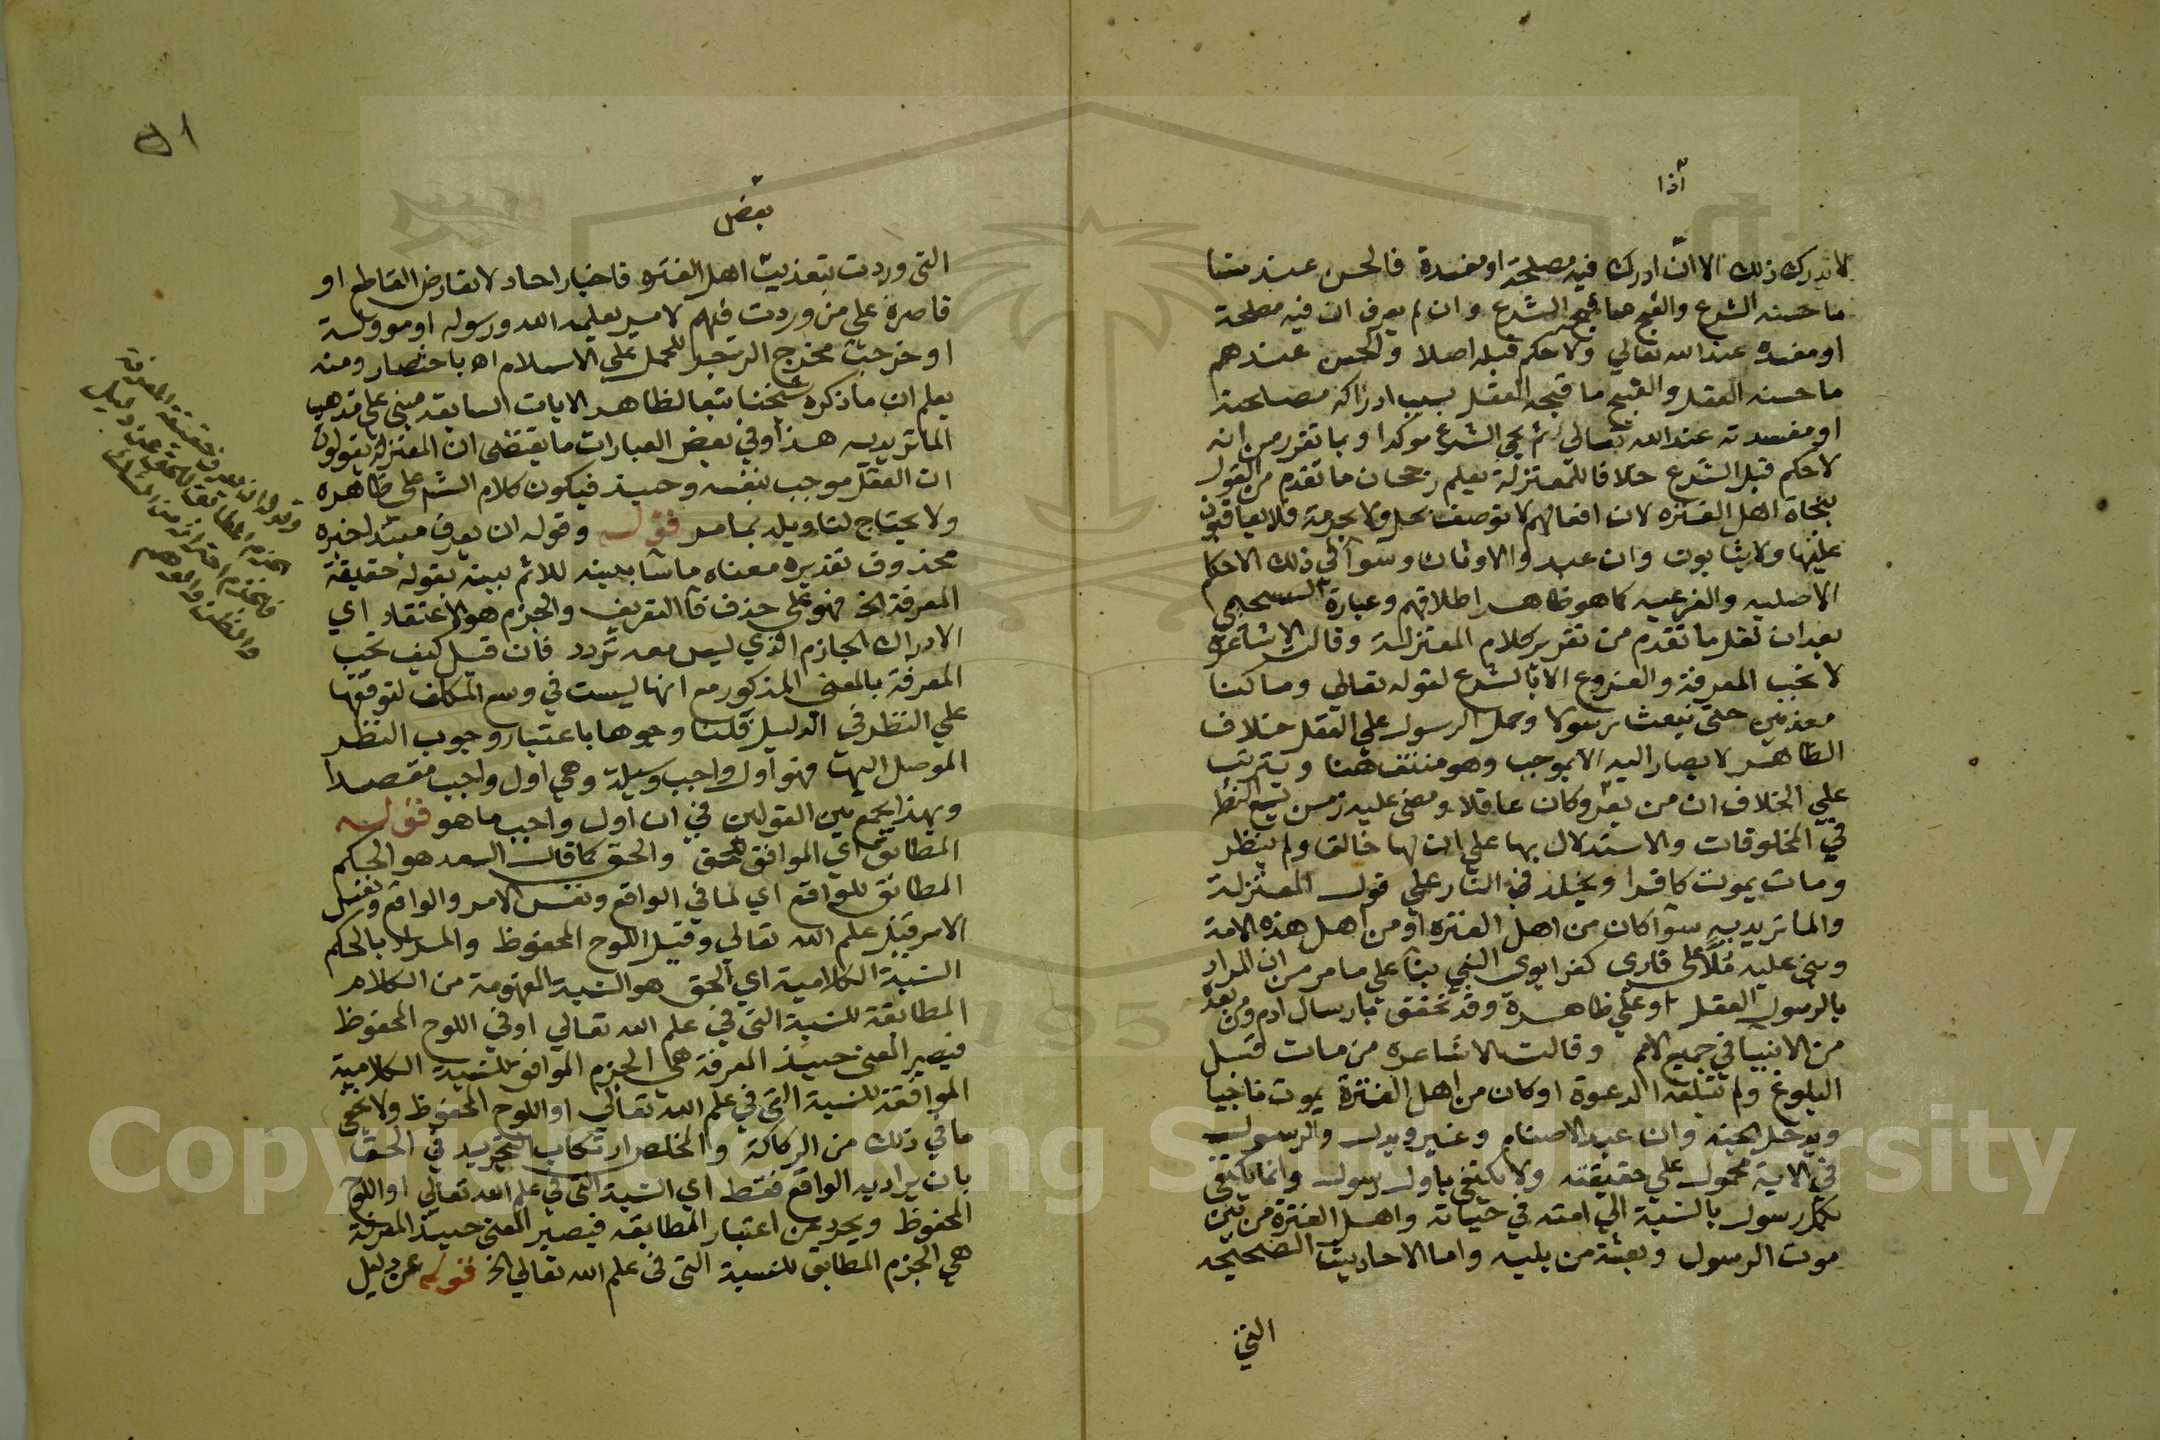 أذا
لا ندرك ذلك الا ان ادرك فيه مصلحة او مفسدة فالحسن عندنا
ما حسنه الشرع والقبح ما قبحه الشرع وان لم يعرف ان فيه مصلحة
او مفسده عند الله تعالي ولا حكم قبله اصلا والحسن عندهم
ما حسنه العقل والقبح ما قبحه العقل بسبب ادراكه مصلحته
او مفسدته عند الله تعالي ثم يجي الشرع موكدا وبما تقرر من انه
لا حكم قبل الشرع خلافا للمعتزلة يعلم رجحان ما تقدم من القول
بنجاة اهل الفتره لان افعالهم لا توصف بحل ولا بحرمة فلا يعاقبون
عليها ولا يثابوت وان عبدوا الاوثان وسوآ في ذلك الاحكام
الاصليه والفرعيه كما هو ظاهر اطلاقهم وعبارة السحيمي
بعد ان نقل ما تقدم من تقرير كلام المعتزلة وقالت الاشاعرة
لا تجب المعرفة والفروع الا بالشرع لقوله تعالي وما كنا
معذبين حتي نبعث رسولا وحمل الرسول علي العقل خلاف
الظاهر لا يصار اليه الا بموجب وهو منتف هنا ويترتب
علي الخلاف ان من بعد وكان عاقلا ومضي عليه زمن يسع النظر
في المخلوقات والاستدلال بها علي ان لها خالقا ولم ينظر
ومات يموت كافرا ويخلد في النار علي قول المعتزلة
والماتريديه سوآ كان من اهل الفتره او من اهل هذه الامة
وبني عليه مُلّا علي قاري كفر ابوي النبي بنآ علي ما مر من ان المراد
بالرسول العقل او علي ظاهره وقد تحقق بارسال ادم ومن بعده
من الانبيا في جميع الامم وقالت الاشاعره من مات قبل
البلوغ ولم تبلغه الدعوة او كان من اهل الفترة يموت ناجيا
ويدخل الجنه وان عبد الاصنام وغير وبدل والرسول
في الاية محمول علي حقيقته ولا يكتفي باول رسول وانما يكتفي
بكل رسول بالنسبة الي امته في حياته واهل الفترة من بين
موت الرسول وبعثة من يليه واما الاحاديث الصحيحه
التي
بعض
التي وردت بتعذيب اهل الفتره فاخبار احاد لا تعارض القاطع او
قاصرة علي من وردت فيهم لامر يعلمه الله ورسوله او موولة
او خرجت مخرج الزجر للحمل علي الاسلام اه باختصار ومنه
يعلم ان ما ذكره شيخنا تبعا لظاهر الايات السابقه مبني علي مذهب
الماتريديه هذا وفي بعض العبارات ما يقتضي ان المعتزلة يقولون
ان العقل موجب بنفسه وحينئذ فيكون كلام الش علي ظاهره
ولا يحتاج لتاويله بما مر قوله وقوله ان يعرف مبتدا خبره
محذوف تقديره معناه ما سابينه للاثم بينه بقوله حقيقة
المعرفة الخ فهو علي حذف فآ التعريف والجزم هو الاعتقاد اي
الادراك الجازم الذي ليس معه تردد فان قيل كيف تجب
المعرفة بالمعني المذكور مع انها ليست في وسع المكلف لتوقفها
علي النظر في الدليل قلنا وجوبها باعتبار وجوب النظر
الموصل اليها فهو اول واجب وسيلة وهي اول واجب مقصدا
وبهذا يجمع بين القولين في ان اول واجب ما هو قوله
المطابق اي الموافق للحق والحق كما قال السعد هو الحكم
المطابق للواقع اي لما في الواقع ونفس الامر والواقع ونفس
الامر قيل علم الله تعالي وقيل اللوح المحفوظ والمراد بالحكم
النسبة الكلامية اي الحق هو النسبة المفهومة من الكلام
المطابقة للنسبة التي في علم الله تعالي او في اللوح المحفوظ
فيصير المعني حينئذ المعرفة هي الجزم الموافق للنسبة الكلامية
الموافقة للنسبة التي في علم الله تعالي او اللوح المحفوظ ولا يخفي
ما في ذلك من الركاكة والمخلص ارتكاب التجريد في الحق
بان يراد به الواقع فقط اي النسبة التي في علم الله تعالي او اللوح
المحفوظ ويجرد عن اعتبار المطابقه فيصير المعني حينئذ المعرفة
هي الجزم المطابق للنسبة التي في علم الله تعالي الخ قوله عن دليل
Copyright © King Saud University